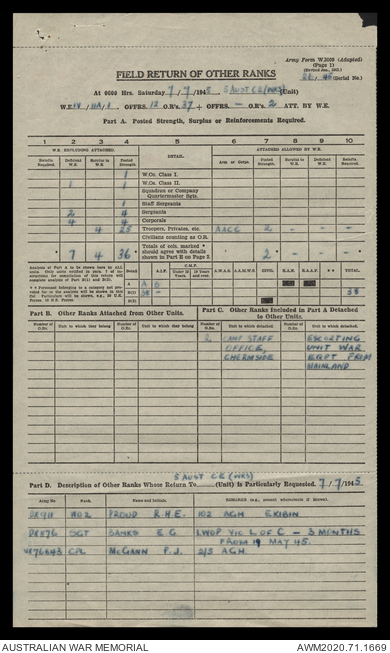 Army Form W.3009 (Adapted)
(Page 1)
FIELD RETURN OF OTHER RANKS
(Serial No.)
At 0600 Hrs. Saturday 7/7/1945 5 AUST CE (WKS) (Unit)
W.E. IV/11A/1 OFFRS. 12 O.R's. 37 + OFFRS. – O.R's. 2 ATT. BY W.E.
Part A. Posted Strength, Surplus or Reinforcements Required.
1 2 3 4 5 6 7 8 9 10
W.E. EXCLUDING ATTACHED. ATTACHED ALLOWED BY W.E.
Reinfts. Required. Deficient W.E. Surplus to W.E. Posted Strength. DETAIL. Arm or Corps. Posted Strength. Surplus to W.E. Deficient W.E. Reinfts. Required.
1 W.Os. Class I.
1 1 W.Os. Class II.
Squadron or Company
Quartermaster Sgts.
1 Staff Sergeants
2 4 Sergeants
4 4 Corporals
4 25 Troopers, Privates, etc. AACC 2 –
Civilians counting as O.R.
* 7 4 36 * Totals of cols. marked * should agree with details shown in Part B on Page 2. 2 –
Detail A.I.F. C.M.F. A.W.A.S. A.A.M.W.S. CIVIL R.A.N. R.A.A.F. TOTAL.
Part B. Other Ranks Attached from Other Units.
Part C. Other Ranks Included in Part A Detached to Other Units.
Number of O.Rs. Unit to which they belong Number of O.Rs. Unit to which they belong Number of O.Rs. Unit to which detached. Number of O.Rs. Unit to which detached.
2 CAMP STAFF OFFICE, CHERMSIDE ESCORTING UNIT WAR EQPT FROM MAINLAND
5 AUST CE (WKS)
Part D. Description of Other Ranks Whose Return To (Unit) Is Particularly Requested. 7/7/1945
Army No. Rank. Name and Initials. REMARKS (e.g., present whereabouts if known).
WO2 PROUD R.H.E. 102 AGH EKIBIN
SGT BANKS E G. LWOP VIC L OF C – 3 MONTHS
FROM 19 MAY 45.
CPL McGANN P.J. 2/5 AGH.
AUSTRALIAN WAR MEMORIAL AWM2020.71.1669